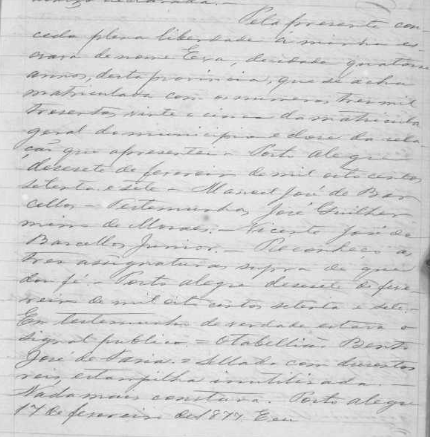 abaixo declarada.—
Pela presente con-
cedo plena liberdade á minha es-
crava de nome Eva, de idade quatorze
annos, desta provincia, que se acha
matriculada com os numeros tres mil
tresentos vinte e cinco da matricula
geral do municipio e doze da rela-
ção que apresentei. Porto Alegre
dezesete de fevereiro de mil oito centos
setenta e sete.— Manoel José de Bar-
cellos.— Testemunhas, José Guilher-
mino de Moraes.— Vicente José de
Barcellos Junior.— Reconheço as
tres assignaturas supra do que
dou fé.— Porto Alegre dezesete de feve-
reiro de mil oito centos setenta e sete.
Em testemunho de verdade estava o
signal publico.— O tabellião Bento
José de Faria. Sellada com duzentos
reis estampilha inutilisada.
Nada mais constava. Porto Alegre
17 de fevereiro de 1877. Eu